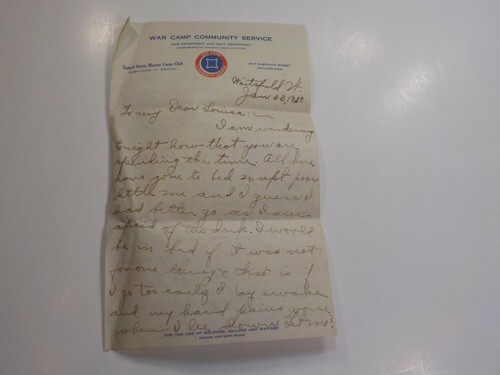 WAR CAMP COMMUNITY SERVICE
WAR DEPARTMENT AND NAVY DEPARTMENT
COMMISSIONS ON TRAINING CAMP ACTIVITIES
United States Marine Corps Club
PHILADELPHIA
Waitsfield Vt.
Jan 23, 1920
To my Dear Louisa:-
I am wondering
tonight how that you are
spending the time. All here
have gone to bed except poor
little me and I guess I
had better go as I am
afraid of the dark. I would
be in bed if it was not
for one thing & that is if
I go too early I lay awake
and my hand pains worse
when I lie down. Let me
FOR THE USE OF SOLDIERS, SAILORS AND MARINES